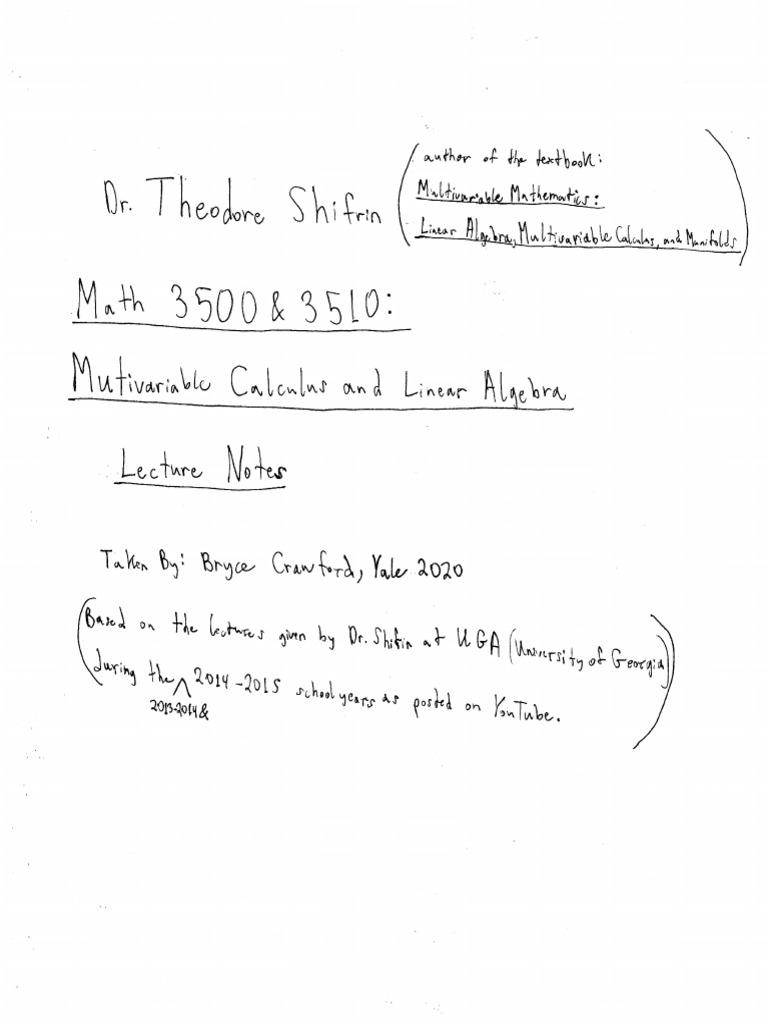 Dr. Theodore Shifrin
(author of the textbook:
Multivariable Mathematics:
Linear Algebra, Multivariable Calculus, and Manifolds)
Math 3500 & 3510:
Mutivariable Calculus and Linear Algebra
Lecture Notes
Taken By: Bryce Crawford, Yale 2020
(Based on the lectures given by Dr. Shifrin at UGA (University of Georgia)
during the 2013-2014 & 2014-2015 school years as posted on YouTube.)